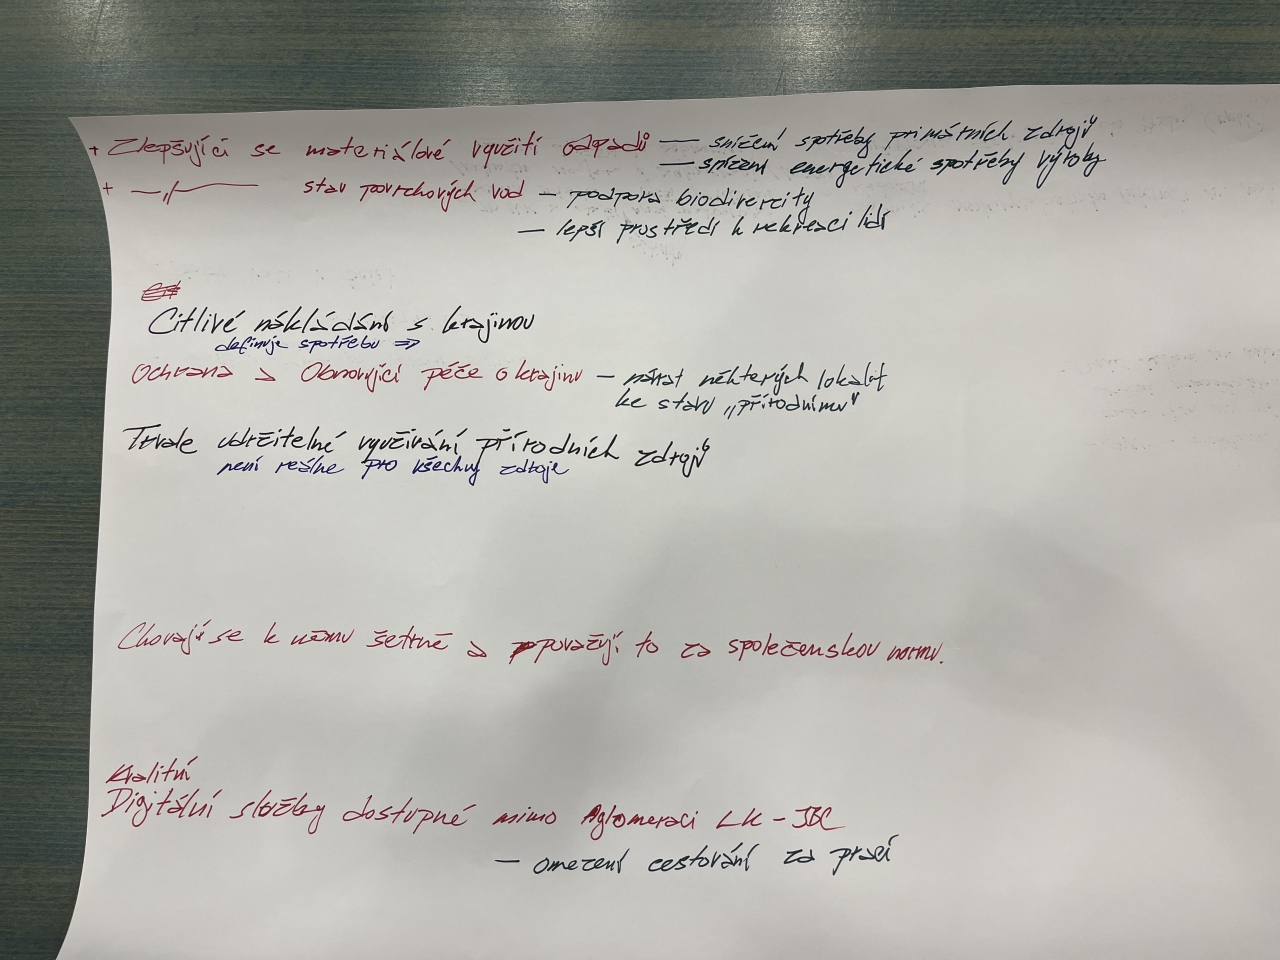 + Zlepšující se materiálové využití odpadů — snížení spotřeby primárních zdrojů
— snížení energetické spotřeby výroby
+ —〃— stav povrchových vod — podpora biodivercity
— lepší prostředí k rekreaci lidí
Citlivé nakládání s krajinou
definuje spotřebu ⇒
Ochrana a Obnovující péče o krajinu — návrat některých lokalit
ke stavu „přírodnímu"
Trvale udržitelné využívání přírodních zdrojů
není reálne pro všechny zdroje
Chovají se k němu šetrně a považují to za společenskou normu.
Kvalitní
Digitální služby dostupné mimo Aglomeraci LK - JBC
— omezení cestování za prací